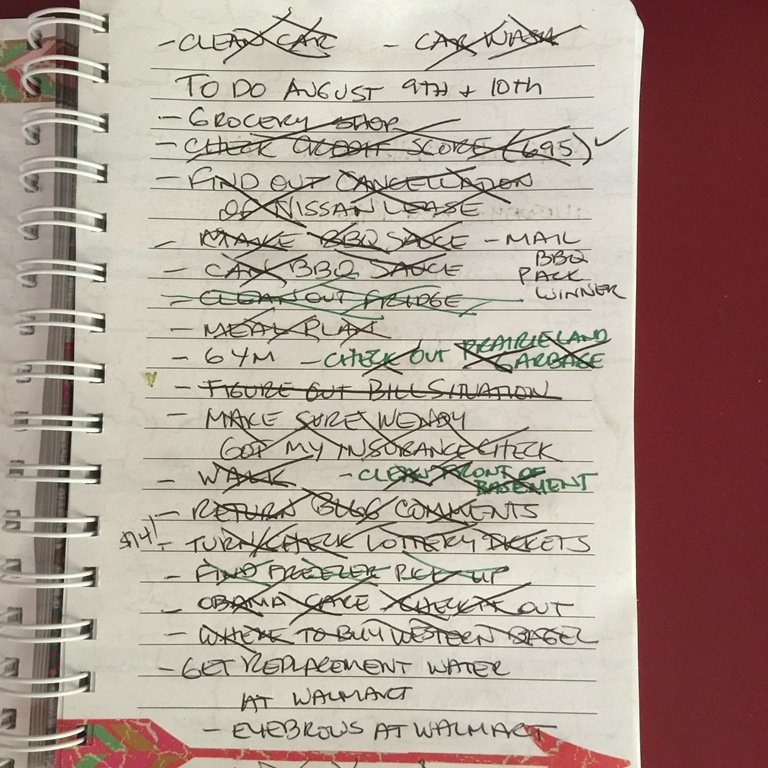 - CLEAN CAR - CAR WASH
TO DO AUGUST 9TH + 10TH
- GROCERY SHOP
- CHECK CREDIT SCORE (695) ✓
- FIND OUT CANCELLATION
OF NISSAN LEASE
- MAKE BBQ SAUCE - MAIL
BBQ
PACK
WINNER
- CAN BBQ SAUCE
- CLEAN OUT FRIDGE
- MEAL PLAN
- GYM - CHECK OUT PRAIRIELAND
GARBAGE
- FIGURE OUT BILL SITUATION
- MAKE SURE WENDY
GOT MY INSURANCE CHECK
- WALK - CLEAN FRONT OF
BASEMENT
- RETURN BLOG COMMENTS
$14! - TURN/CHECK LOTTERY TICKETS
- FIND FREEZER PICK UP
- OBAMA CARE - CHECK IT OUT
- WHERE TO BUY WESTERN BAGEL
- GET REPLACEMENT WATER
AT WALMART
- EYEBROWS AT WALMART